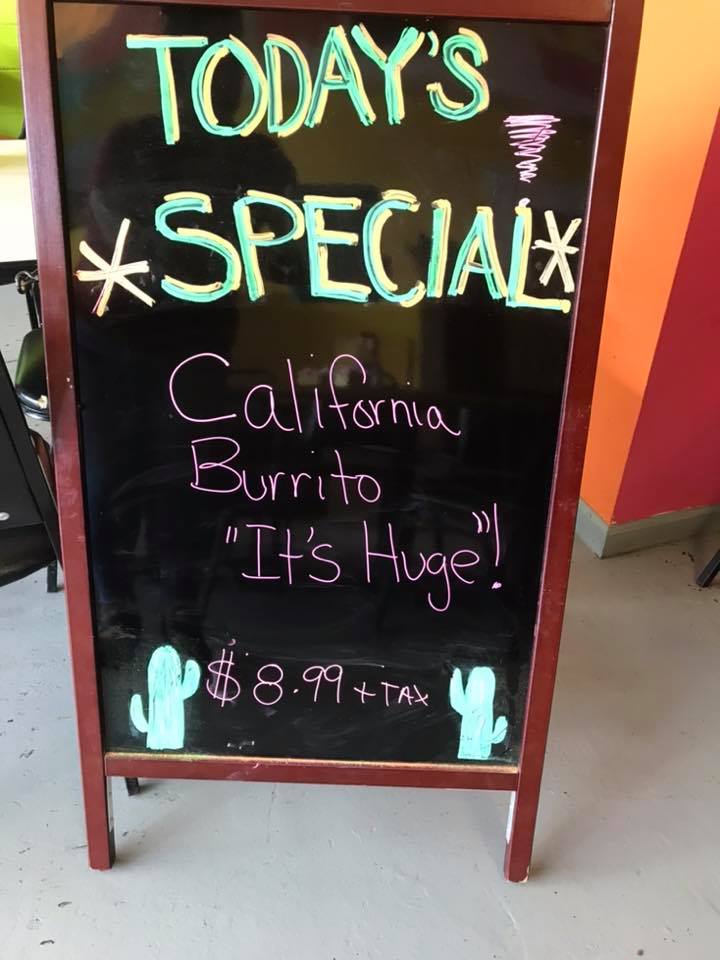 TODAY'S
*SPECIAL*
California
Burrito
"It's Huge"!
$8.99 + TAX